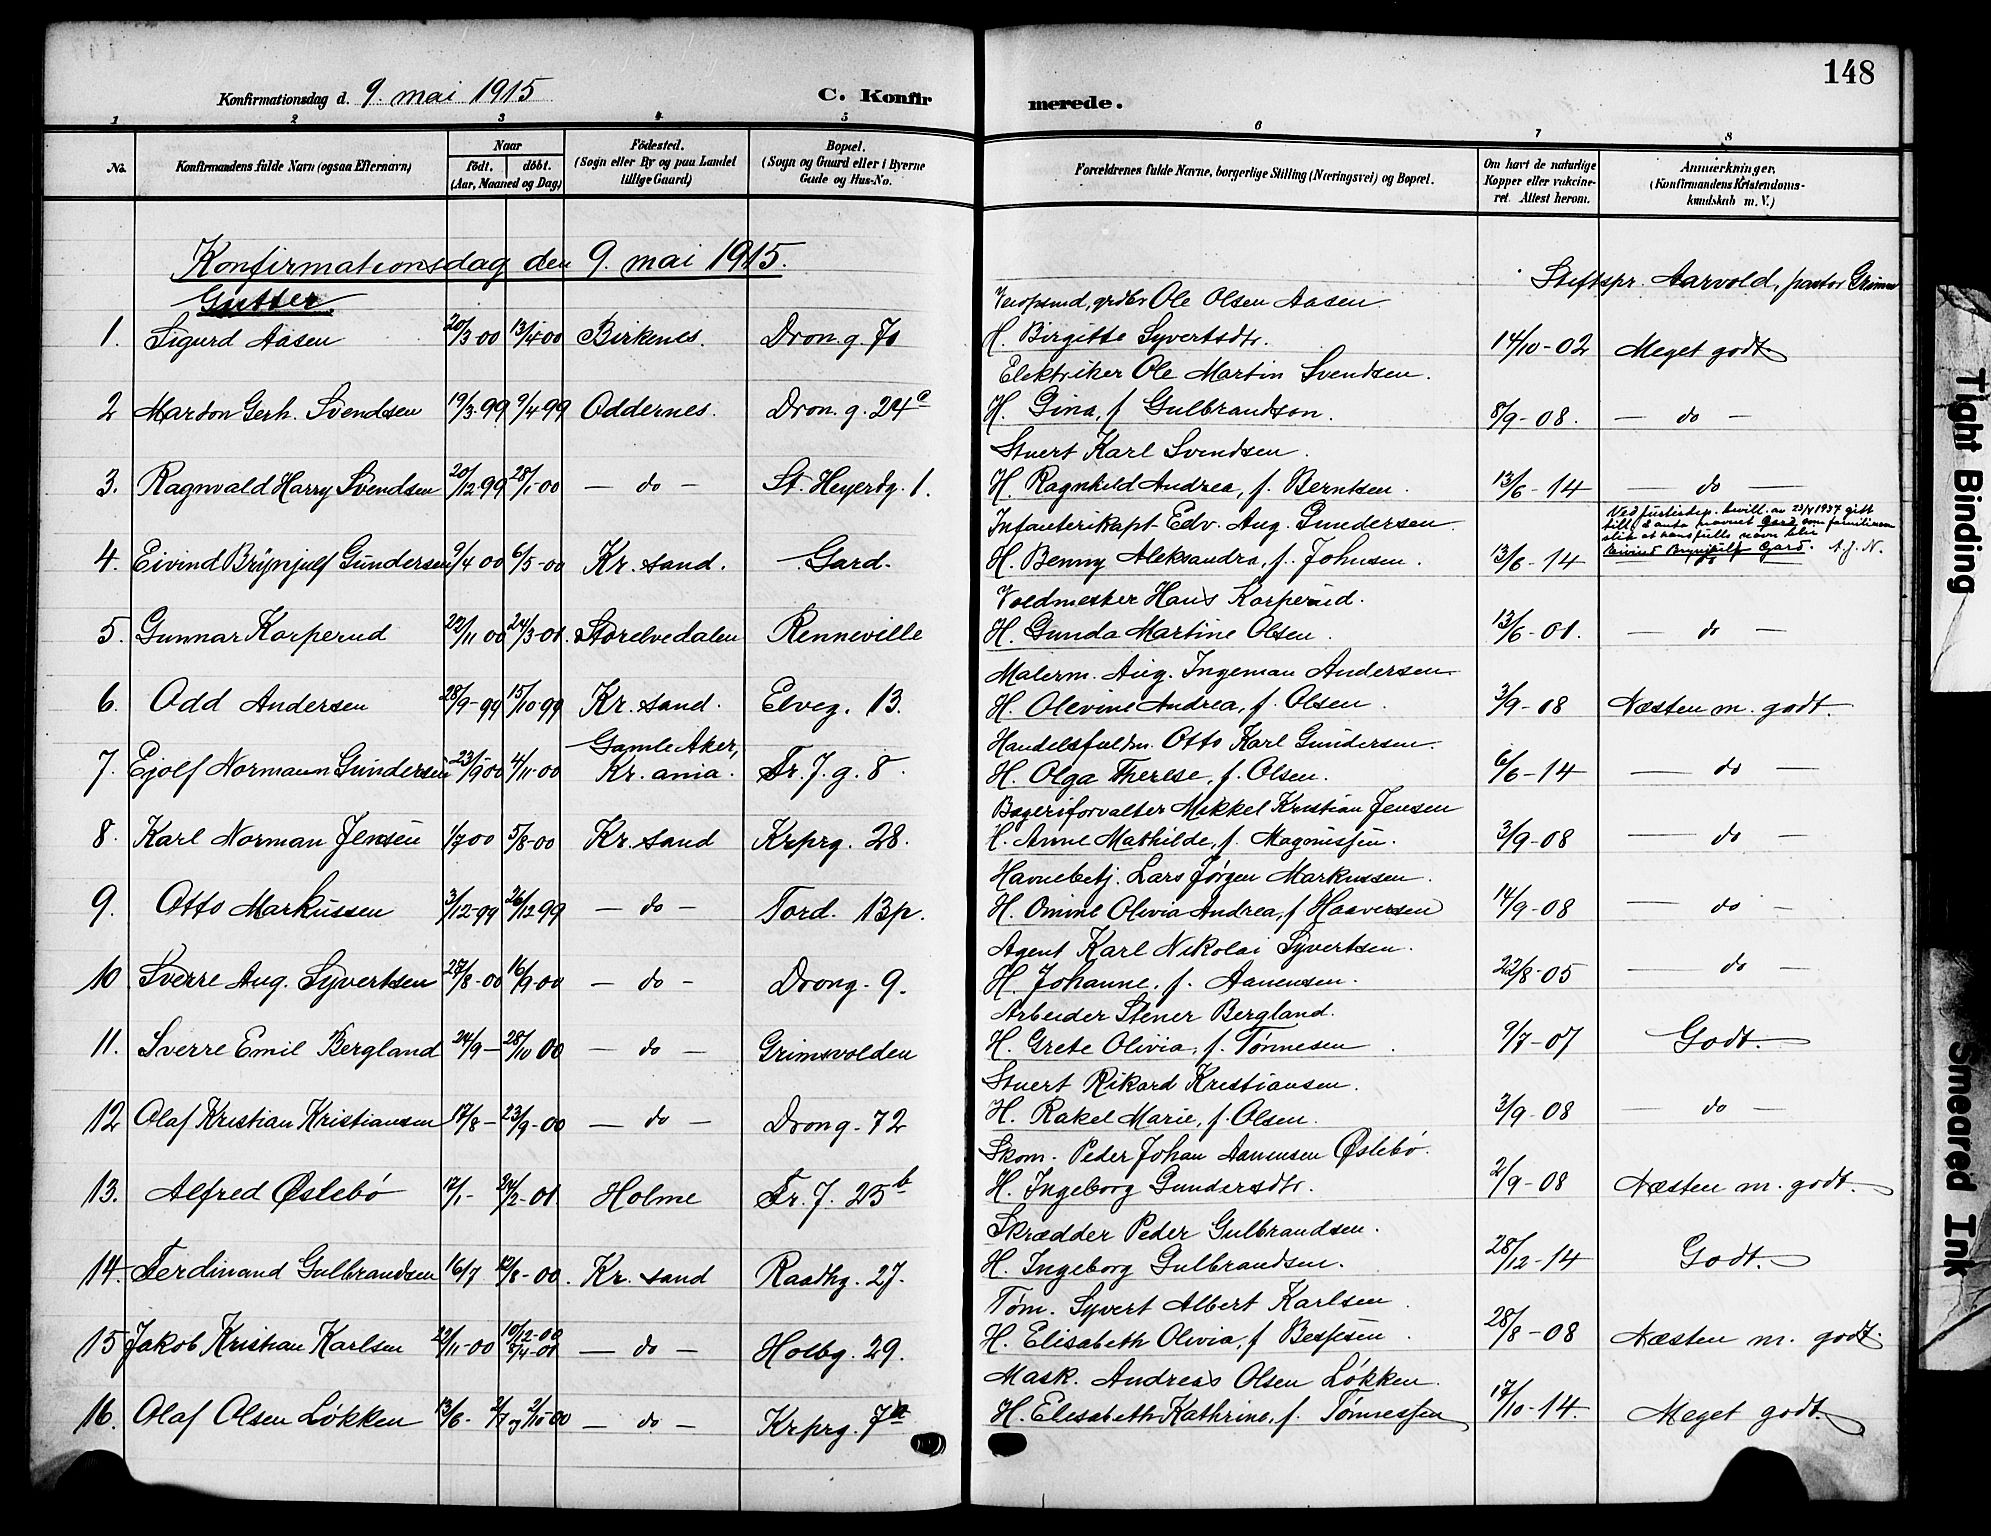 148
Konfirmationsdag d. 9. mai 1915 C. Konfirmerede.
1 2 3 4 5 6 7 8
No. Konfirmandens fulde Navn (ogsaa Efternavn) Naar født. døbt. (Aar, Maaned og Dag) Fødested. (Sogn eller By og paa Landet tillige Gaard) Bopæl. (Sogn og Gaard eller i Byerne Gade og Hus-No. Forældrenes fulde Navne, borgerlige Stilling (Næringsvei) og Bopæl. Om havt de naturlige Kopper eller vakcineret. Attest herom. Anmærkninger. (Konfirmandens Kristendomskundskab m. V.)
Konfirmationsdag den 9. mai 1915.
Stiftspr. Aarvold, pastor
Gutter.
Ole Olsen Aasen
1. Sigurd Aasen 20/3 00 13/4 00 Birkenes. Dron.g. 70 H. Birgitte Syvertsdtr. 14/10-02 Meget godt
Elektriker Ole Martin Svendsen.
2 Marton Gerh. Svendsen 19/3 99 9/4 99 Oddernes. Dron.g. 24 H. Gina, f Gulbrandson. 8/9-08. — do —
Stuert Karl Svendsen.
3. Ragnvald Harry Svendsen 20/12 99 28/1-00 — do — St. Heyerdg. 1. H. Ragnhild Andrea, f. Berntsen. 13/6-14 — do —
Infanterikapt Edv. Aug. Gundersen
Ved justisdep. bevill. av 23/4 1937 gitt
till. å anta navnet Gard som familienavn
slik at hans fulle navn blir
4. Eivind Brynjulf Gundersen 9/4 00 6/5-00 Kr. sand. Gard. H. Benny Aleksandra, f. Johnsen. 13/6-14 Eivind Brynjulf Gard. A.J.N.
do
Voldmester Hans Korperud.
5. Gunnar Korperud 22/11 00 24/3-01. Storelvedalen Renneville H. Gunda Martine Olsen. 13/6-01. — do —
Malerm. Aug. Ingeman Andersen
6. Odd Andersen 28/9-99 15/10-99 Kr. sand. Elveg. 13. H. Olevine Andrea, f. Olsen. 3/9-08 Næsten m. godt.
Handelsfuldm. Otto Karl Gundersen.
7. Ejolf Normann Gundersen 23/9 00 4/11-00 Gamle Aker, Kr.ania. Tr. J. g. 8. H. Olga Therese, f. Olsen. 6/6-14 — do —
Bageriforvalter Mikkel Kristian Jensen
8. Karl Norman Jensen 1/7 00 5/8-00 Kr. sand Krprg. 28. H. Anne Mathilde, f. Magnussen. 3/9-08 — do —
Havnebetj. Lars Jørgen Markussen.
9. Otto Markussen 3/12-99 26/12 99 — do — Tord. 13p. H. Omine Olivia Andrea, f Haaversen 14/9-08 — do —
Agent Karl Nikolai Syvertsen.
10 Sverre Aug. Syvertsen 27/8-00 16/9-00 — do — Drong. 9. H. Johanne, f. Aanensen. 22/8-05 — do —
Arbeider Stener Bergland.
11. Sverre Emil Bergland 24/9 — 28/10 00 — do — Grimsvolden H. Grete Olivia, f. Tønnesen 9/7-07 Godt.
Stuert Rikard Kristiansen.
12 Olaf Kristian Kristiansen 17/8 — 23/9-00 — do — Drong. 72 H. Rakel Marie, f. Olsen. 3/9-08 — do —
Skom. Peder Johan Aanensen Øslebø.
13. Alfred Øslebø 17/1- 24/2-01 Holme Tr. J. 25 b H. Ingeborg Gundersdtr. 2/9-08 Næsten m. godt.
Skrædder Peder Gulbrandsen.
14. Ferdinand Gulbrandsen 16/7 12/8-00. Kr. sand Raadhg. 27. H. Ingeborg Gulbrandsen. 28/12-14 Godt.
Tøm. Syvert Albert Karlsen
15 Jakob Kristian Karlsen 22/11-00 10/12-00 8/4-01 — do — Holbg. 29. H. Elisabeth Olivia, f Bessesen 28/8-08 Næsten m. godt.
Mask. Andreas Olsen Løkken.
16. Olaf Olsen Løkken 13/6- 2/7 og 2/10-00 — do — Krprg. 7 a H. Elisabeth Kathrine, f. Tønnessen 17/10-14. Meget godt.
Tight Binding
Smeared Ink